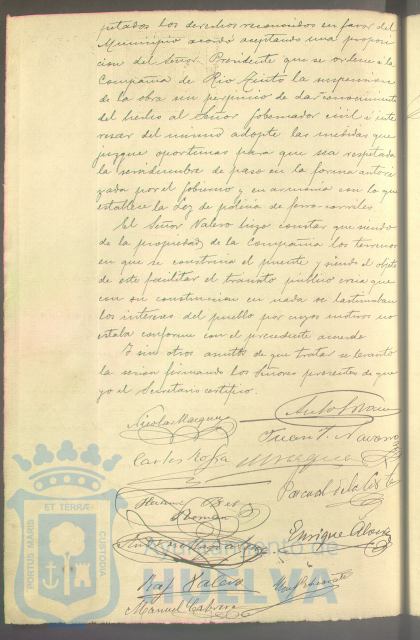 petados los derechos reconocidos en favor del
Municipio acordó aceptando una proposi
cion del Señor Presidente que se ordene a la
Compañia de Rio Tinto la suspension
de la obra sin perjuicio de dar conocimiento
del hecho al Señor Gobernador civil é inte
resar del mismo adopte las medidas que
juzgue oportunas para que sea respetada
la servidumbre de paso en la forma autori
zada por el Gobierno y en armonia con lo que
establece la Ley de policia de ferro-carriles.
El Señor Valero hizo constar que siendo
de la propiedad de la Compañia los terrenos
en que se construia el puente y siendo el objeto
de este facilitar el tránsito público creia que
con su construccion en nada se lastimaban
los intereses del pueblo por cuyos motivos no
estaba conforme con el precedente acuerdo
Y sin otros asuntos de que tratar se levantó
la sesion firmando los Señores presentes de que
yo el Secretario certifico.
Nicolas Marquez
Juan J. Navarro
Carlos Rofa
Pascual de la
Enrique
Manuel Cabrera
ET TERRÆ
PORTUS MARIS
CUSTODIA
Ayuntamiento de
HUELVA